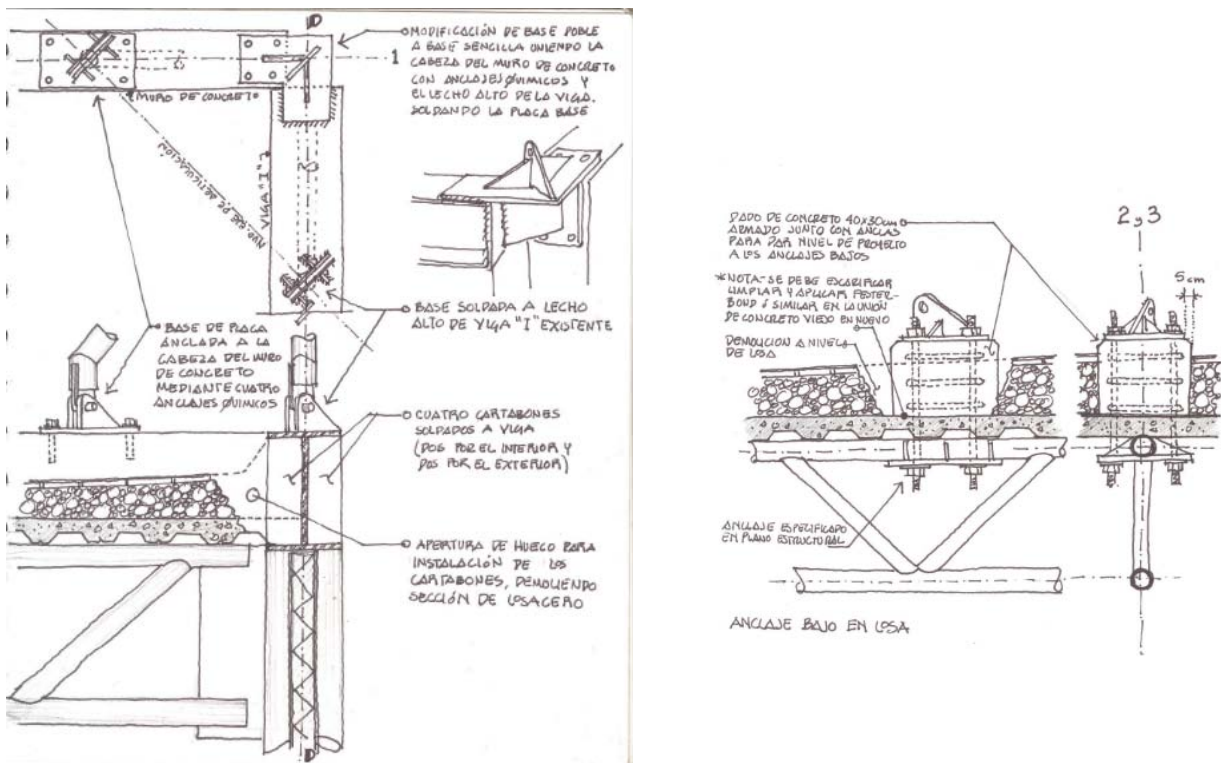 D
MODIFICACIÓN DE BASE DOBLE
A BASE SENCILLA UNIENDO LA
CABEZA DEL MURO DE CONCRETO
CON ANCLAJES QUIMICOS Y
EL LECHO ALTO DE LA VIGA.
SOLDANDO LA PLACA BASE
1
MURO DE CONCRETO
DE ARTICULACIÓN
VIGA "I"
BASE SOLDADA A LECHO
ALTO DE VIGA "I" EXISTENTE
BASE DE PLACA
ANCLADA A LA
CABEZA DEL MURO
DE CONCRETO
MEDIANTE CUATRO
ANCLAJES QUIMICOS
CUATRO CARTABONES
SOLDADOS A VIGA
(DOS POR EL INTERIOR Y
DOS POR EL EXTERIOR)
APERTURA DE HUECO PARA
INSTALACIÓN DE LOS
CARTABONES, DEMOLIENDO
SECCIÓN DE LOSACERO
D
DADO DE CONCRETO 40X30cm
ARMADO JUNTO CON ANCLAS
PARA DAR NIVEL DE PROYECTO
A LOS ANCLAJES BAJOS
*NOTA-SE DEBE ESCARIFICAR
LIMPIAR Y APLICAR FESTER-
BOND Ó SIMILAR EN LA UNIÓN
DE CONCRETO VIEJO EN NUEVO
DEMOLICION A NIVEL
DE LOSA
2 y 3
5 cm
ANCLAJE ESPECIFICADO
EN PLANO ESTRUCTURAL
ANCLAJE BAJO EN LOSA